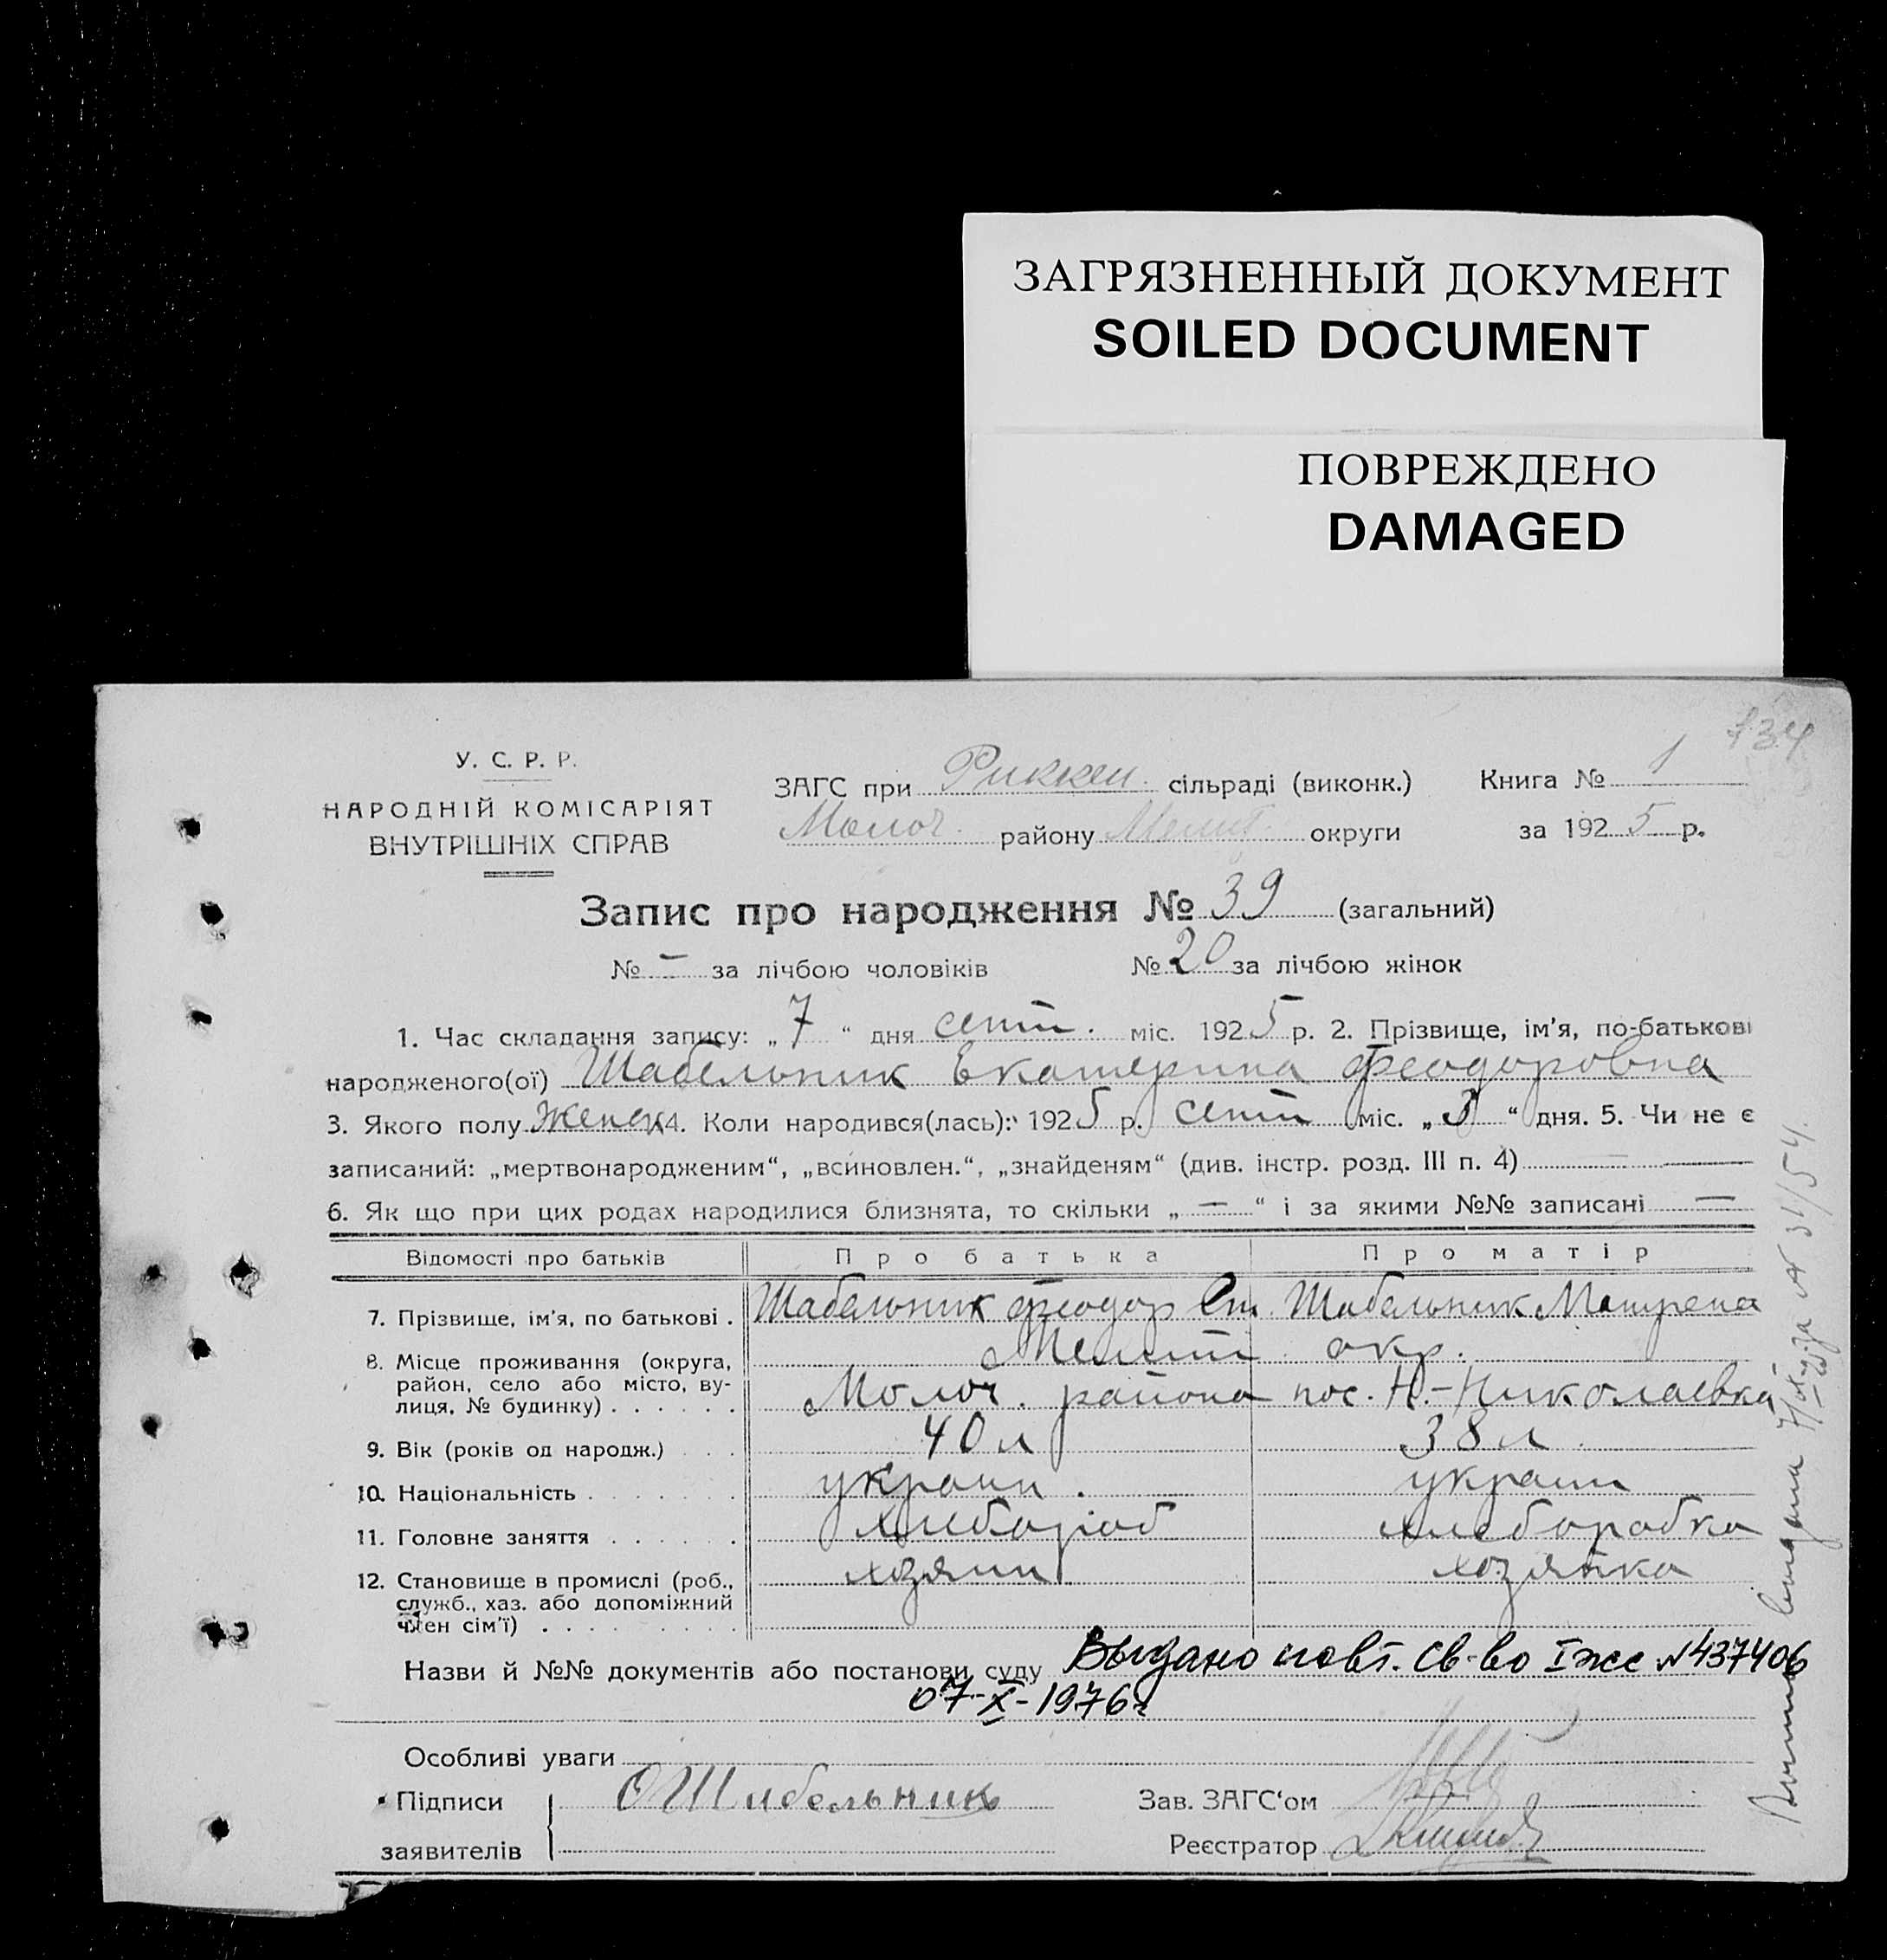 ЗАГРЯЗНЕННЫЙ ДОКУМЕНТ
SOILED DOCUMENT
ПОВРЕЖДЕНО
DAMAGED
134
У. С. Р. Р.
НАРОДНІЙ КОМІСАРІЯТ
ВНУТРІШНІХ СПРАВ
ЗАГС при Риккен. сільраді (виконк.) Книга № 1
Молоч. району Мелит. округи за 1925 р.
Запис про народження № 39 (загальний)
№ — за лічбою чоловіків № 20 за лічбою жінок
1. Час складання запису: „7“ дня сент. міс. 1925 р. 2. Прізвище, ім'я, по-батькові
народженого(ої) Шабельник Екатерина Феодоровна
3. Якого полу женск 4. Коли народився(лась): 1925 р. сент міс. „3“ дня. 5. Чи не є
записаний: „мертвонародженим“, „всиновлен.“, „знайденям“ (див. інстр. розд. III п. 4) —
6. Як що при цих родах народилися близнята, то скільки „—“ і за якими №№ записані —
Відомості про батьків Про батька Про матір
7. Прізвище, ім'я, по батькові . Шабельник Феодор Ст. Шабельник Матрена
8. Місце проживання (округа, район, село або місто, ву- лиця, № будинку) . . . . . . Мелит окр.
Молоч. района пос. Н.-Николаевка
9. Вік (років од народж.) . . . 40 л 38 л
10. Національність . . . . . . . украин. украин
11. Головне заняття . . . . . . хлебороб хлеборобка
12. Становище в промислі (роб., служб., хаз. або допоміжний член сім'ї) . . . . . . . . . хозяин хозяйка
Назви й №№ документів або постанови суду Выдано повт. св-во І жс №437406
07-X-1976г
Особливі уваги
Підписи Шабельник Зав. ЗАГС'ом
заявителів Реєстратор